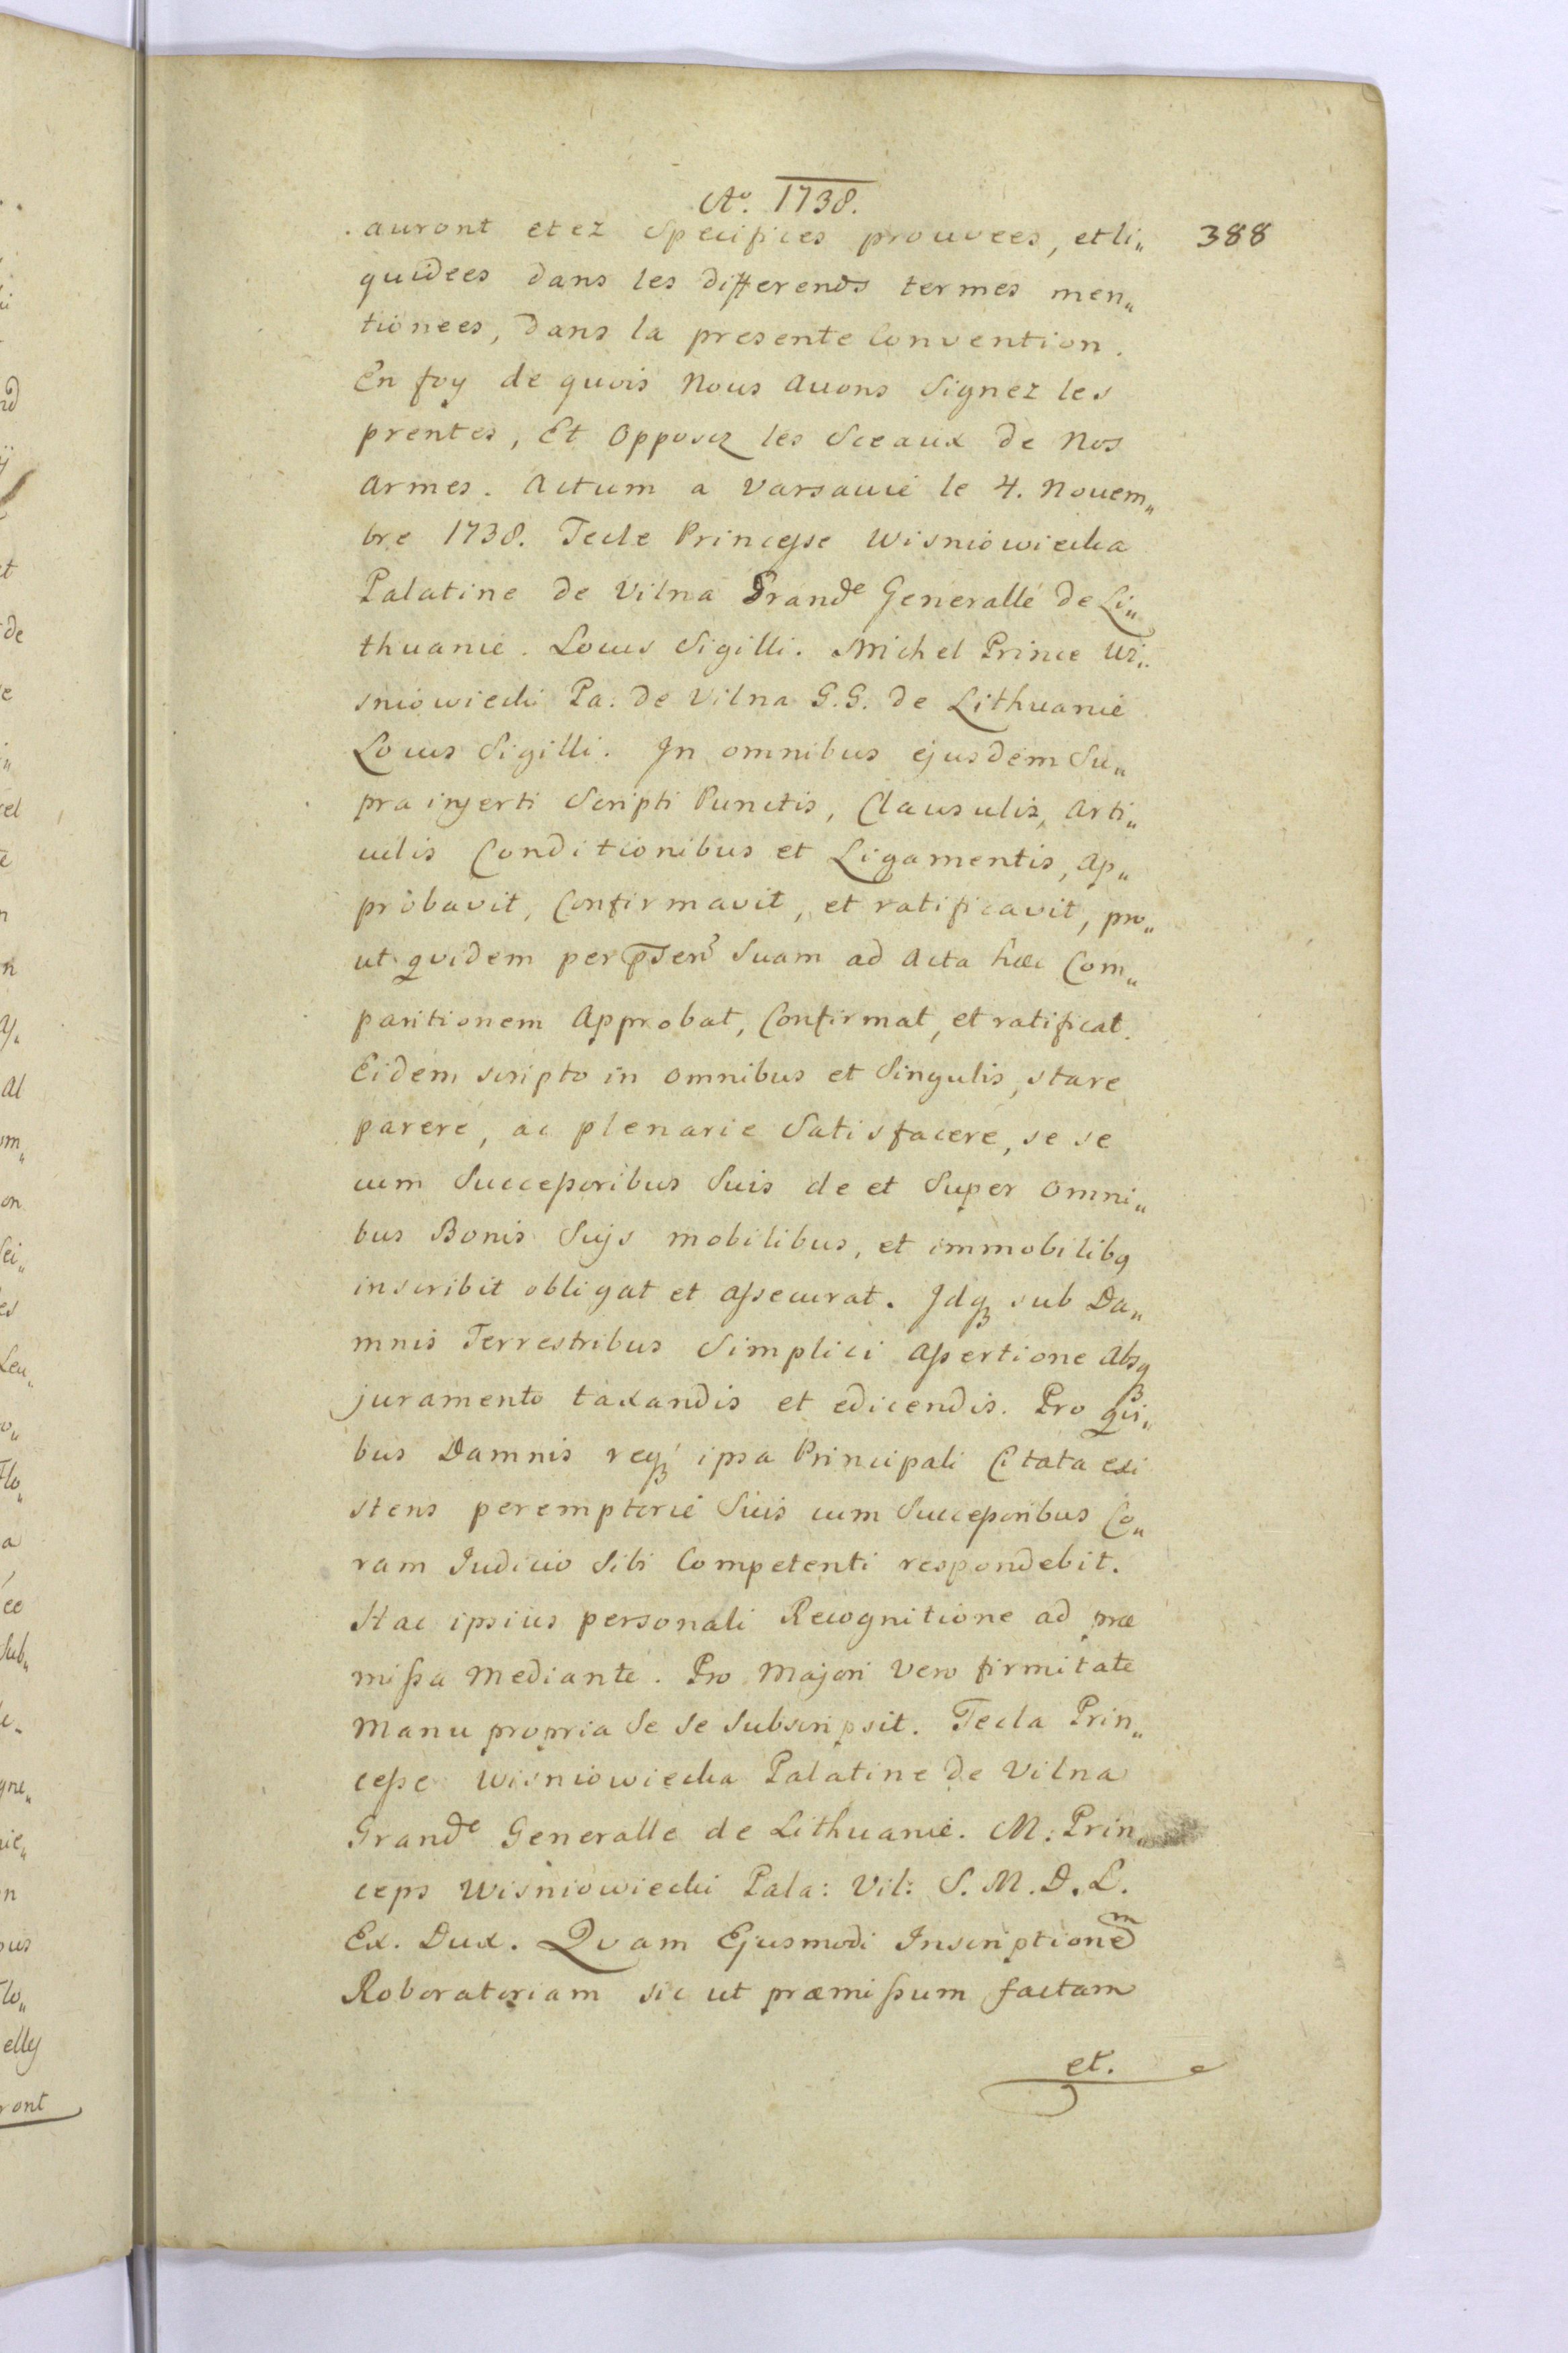 Aо. 1738.
388
auront etez Specifices prouvees, et li„
quidees dans les differends termes men„
tionees, dans la presente Convention.
En foy de quois Nous Avons Signez les
prentes, Et Opposez les Sceaux de Nos
Armes. Actum a Varsavie le 4. Novem„
bre 1738. Tecle Princesse Wisniowiecka
Palatine de Vilna Grande Generalle de Li„
thuanie. Locus Sigilli. Michel Prince Wi„
sniowiecki Pa: de Vilna G.G. de Lithuanie
Locus Sigilli. In omnibus ejusdem Su„
pra inserti Scripti Punctis, Clausulis, Arti„
culis Conditionibus et Ligamentis, Ap„
probavit, Confirmavit, et ratificavit, pro„
ut quidem per Suam ad Acta hæc Com„
paritionem Approbat, Confirmat, et ratificat.
Eidem scripto in omnibus et Singulis, stare
parere, ac plenarie Satisfacere, se se
cum Successoribus Suis de et Super omni„
bus Bonis Suis mobilibus, et immobilibq
inscribit obligat et assecurat. Idq sub Da„
mnis Terrestribus Simplici Assertione Absq
juramento taxandis et edicendis. Pro qui„
bus Damnis req ipsa Principali Citata exi
stens peremptorie Suis cum Successoribus Co„
ram Judicio Sibi Competenti respondebit.
Hac ipsius personali Recognitione ad præ
missa Mediante. Pro Majori Vero firmitate
Manu propria Se Se Subscripsit. Tecla Prin„
cesse Wisniowiecka Palatine de Vilna
Grande Generalle de Lithuanie. M: Prin„
ceps Wisniowiecki Pala: Vil: S. M. D. L.
Ex. Dux. Quam Ejusmodi Inscriptionem
Roboratoriam sic ut præmissum factam
et.